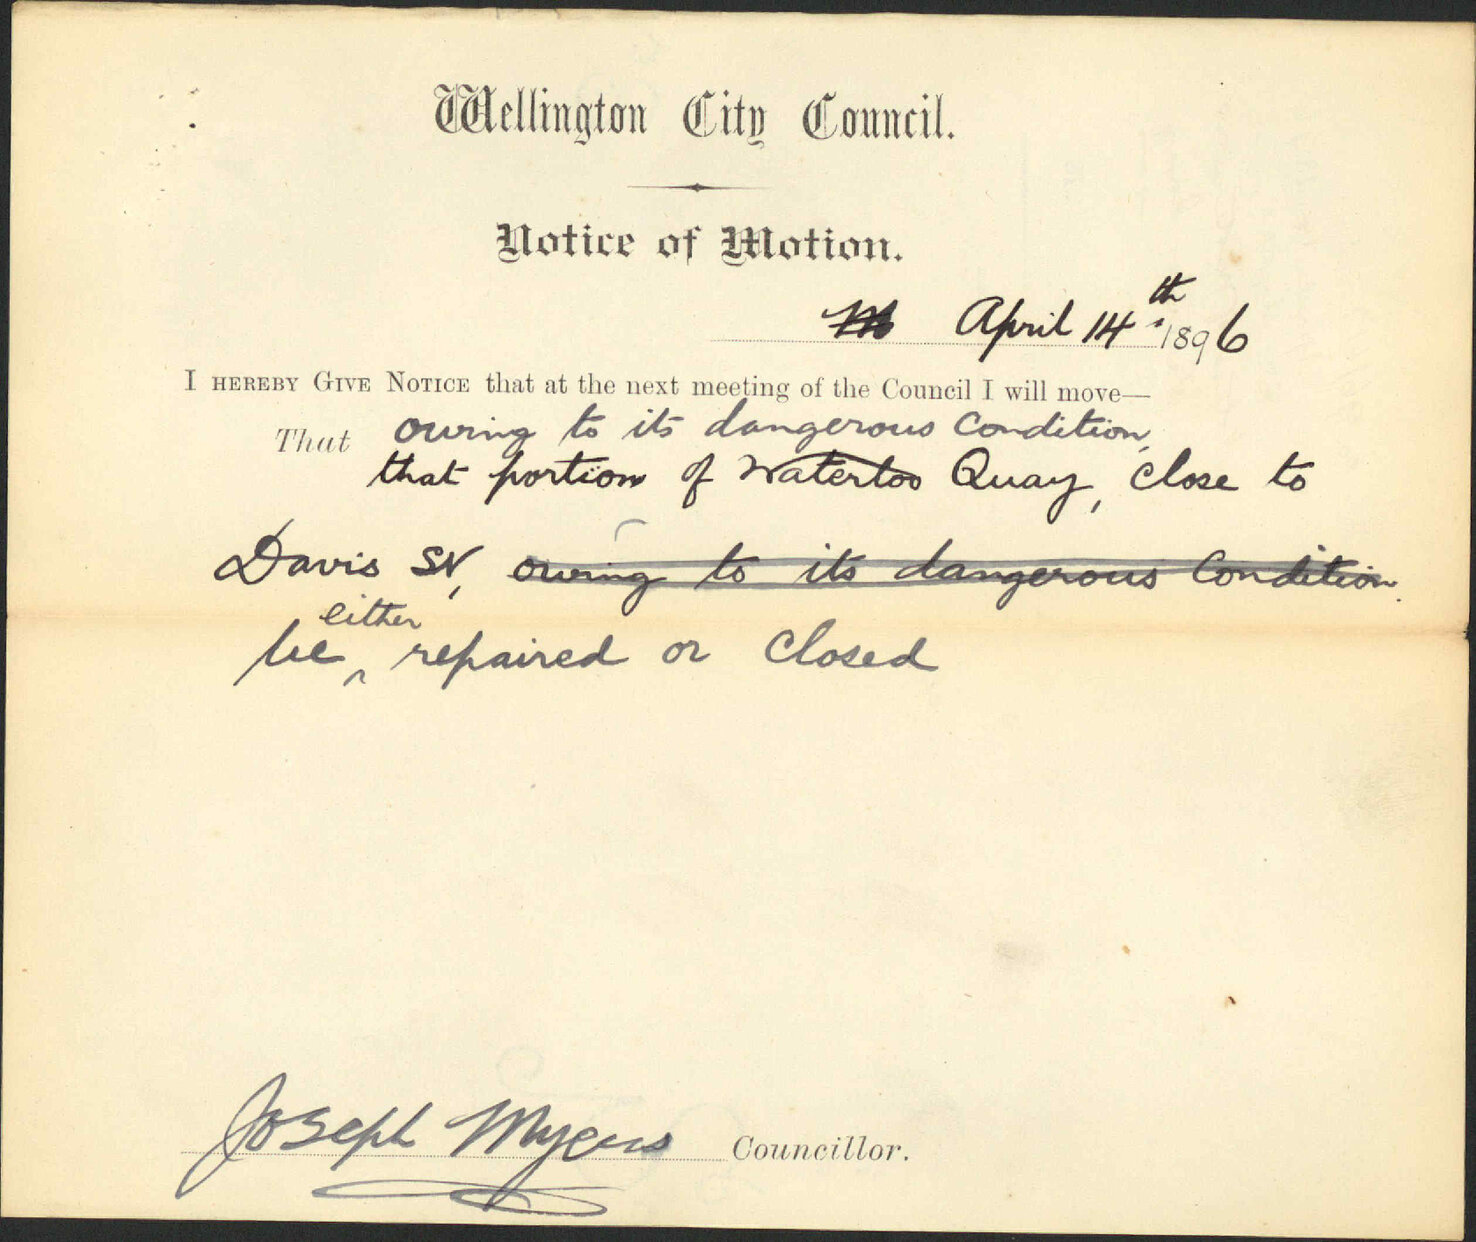 Wellington City Council.
Notice of Motion.
April 14th 1896
I HEREBY GIVE NOTICE that at the next meeting of the Council I will move—
That owing to its dangerous condition,
that portion of Waterloo Quay, close to
Davis St, owing to its dangerous condition.
either
be ^ repaired or closed
Joseph Myers Councillor.